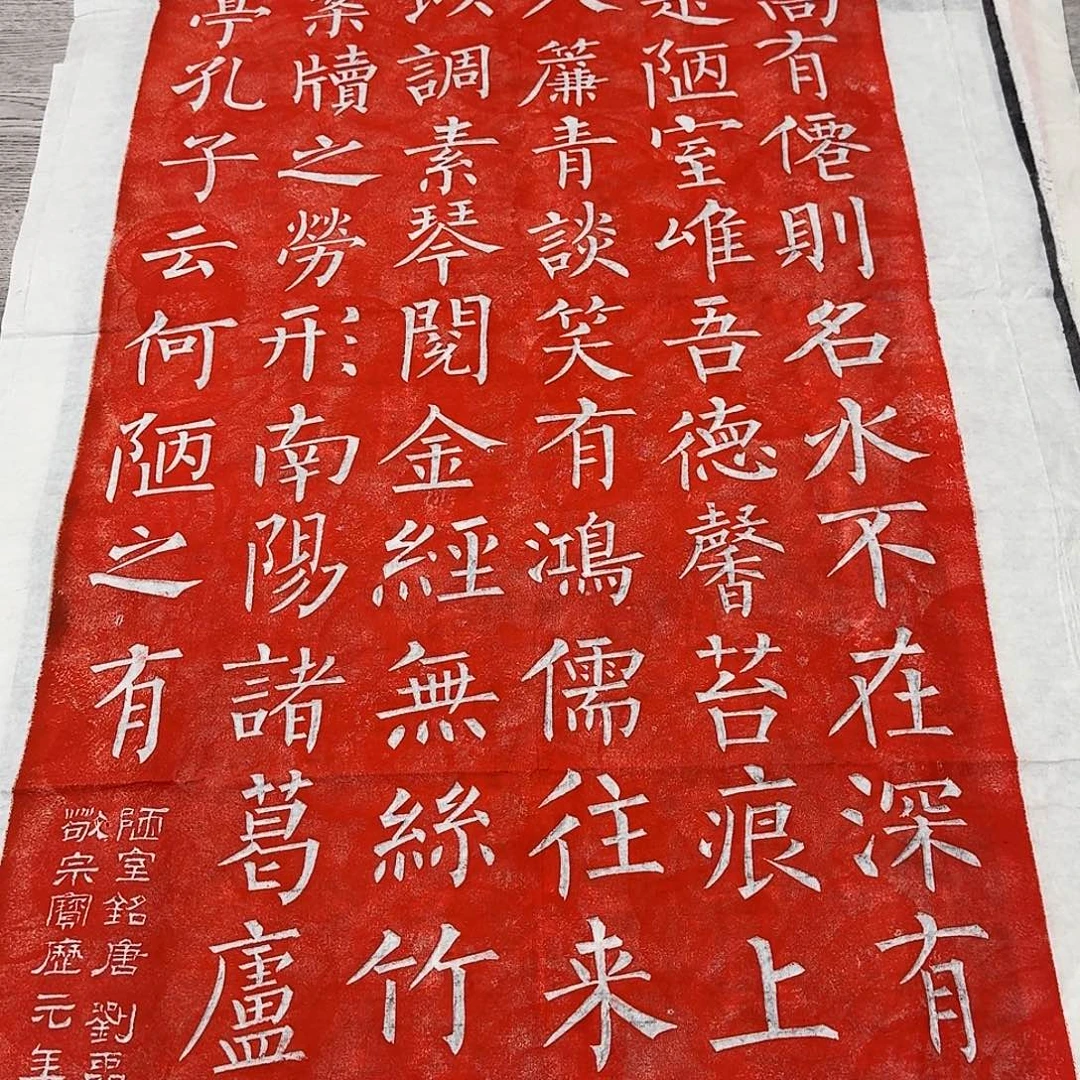 高有僊則名水不在深有
是陋室唯吾德馨苔痕上
入簾青談笑有鴻儒往来
以調素琴閱金經無絲竹
案牘之勞形南陽諸葛廬
亭孔子云何陋之有
陋室銘唐劉禹
敬宗寶歷元年